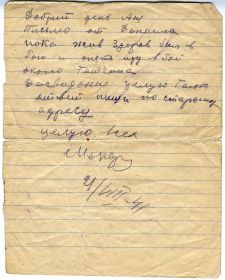 Добрый день Ан
Письмо от Даниила
пока жив здоров был в
бою и опять иду в бой
около
Досвидание целую Галю
ответ пиши по старому
адресу
целую всех